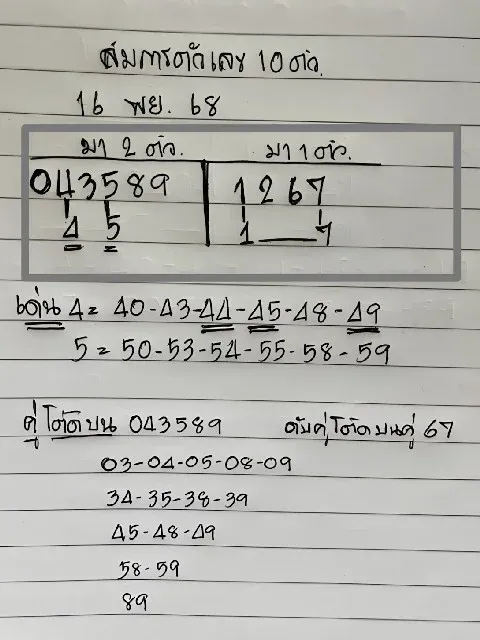 สมการตัวเลข 10 ตัว.
16 พย. 68
มา 2 ตัว. มา 1 ตัว.
043589 1267
4 5 1 7
เด่น 4 = 40-43-44-45-48-49
5 = 50-53-54-55-58-59
คู่โต๊ดบน 043589 ดับคู่โต๊ดบนคู่ 67
03-04-05-08-09
34-35-38-39
45-48-49
58-59
89